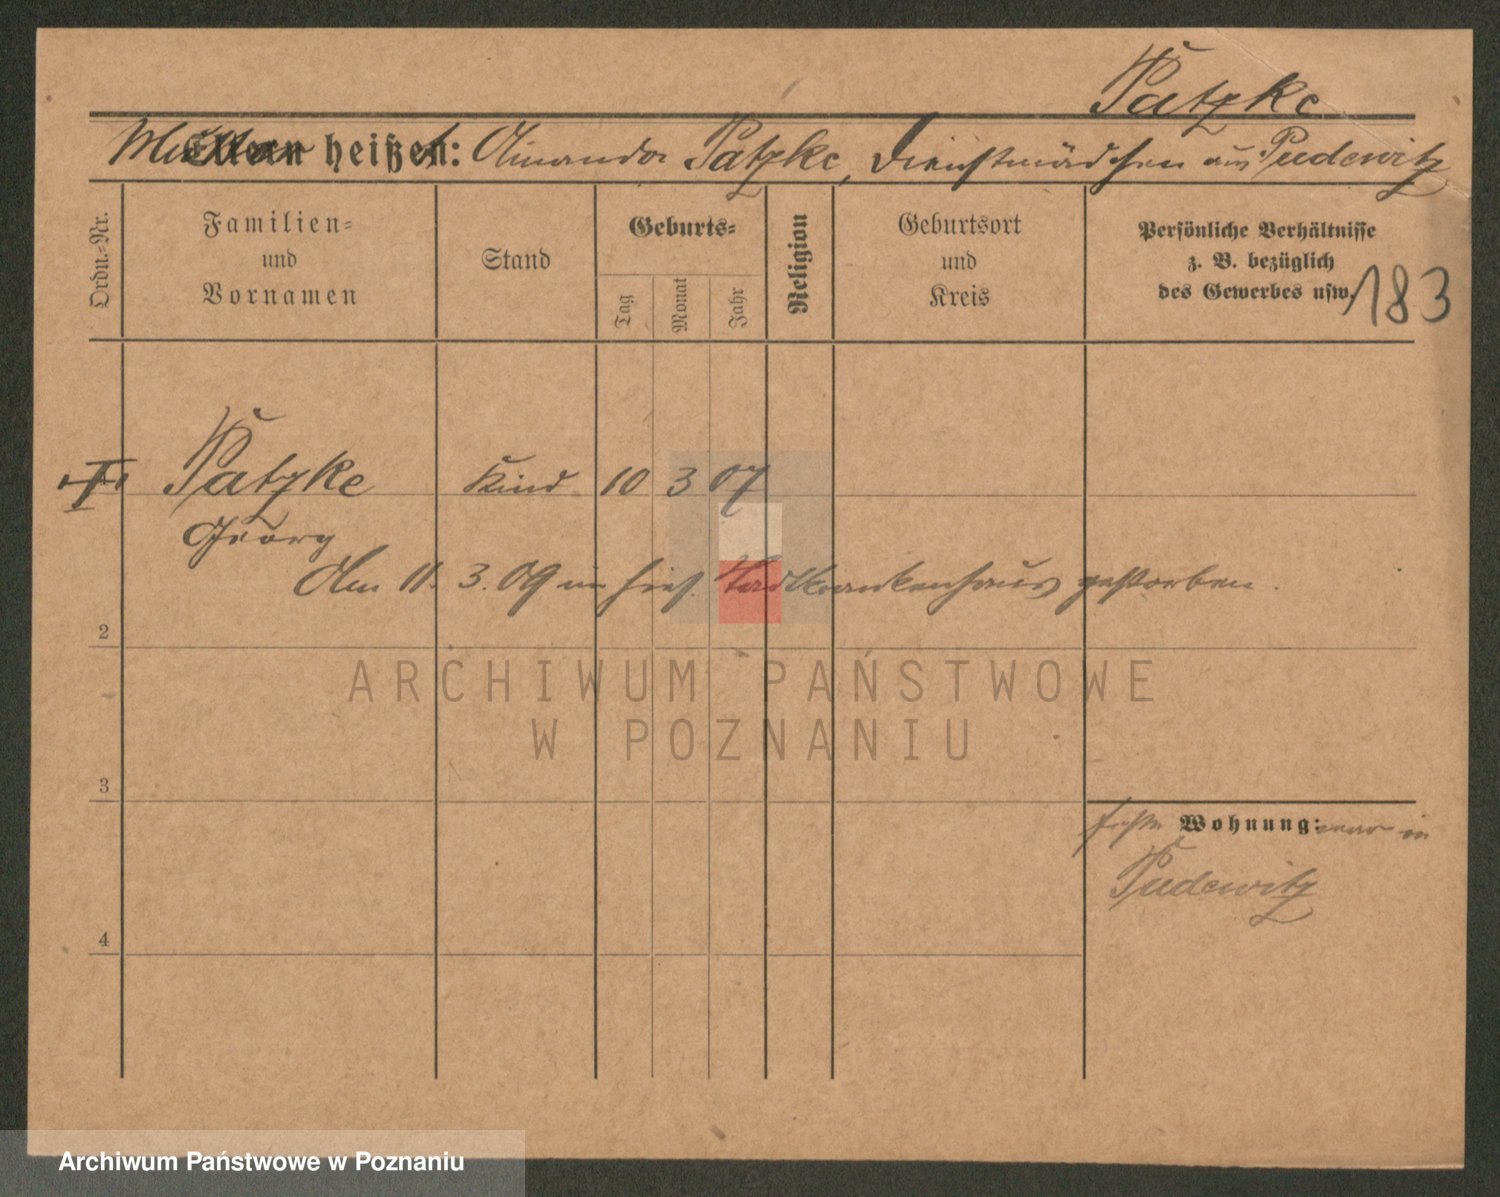 Patzke
Mutter heißt: Amanda Patzke, Dienstmädchen aus Pudewitz
Ordn.=Nr.
Familien=
und
Vornamen
Stand
Geburts=
Tag
Monat
Jahr
Religion
Geburtsort
und
Kreis
Persönliche Verhältnisse
z. B. bezüglich
des Gewerbes usw.
183
Patzke Kind 10 3 07
Georg
Am 11. 3. 09 im hies. Stadtkrankenhaus gestorben.
2
3
4
Wohnung: war in
Pudewitz
ARCHIWUM PAŃSTWOWE
W POZNANIU
Archiwum Państwowe w Poznaniu